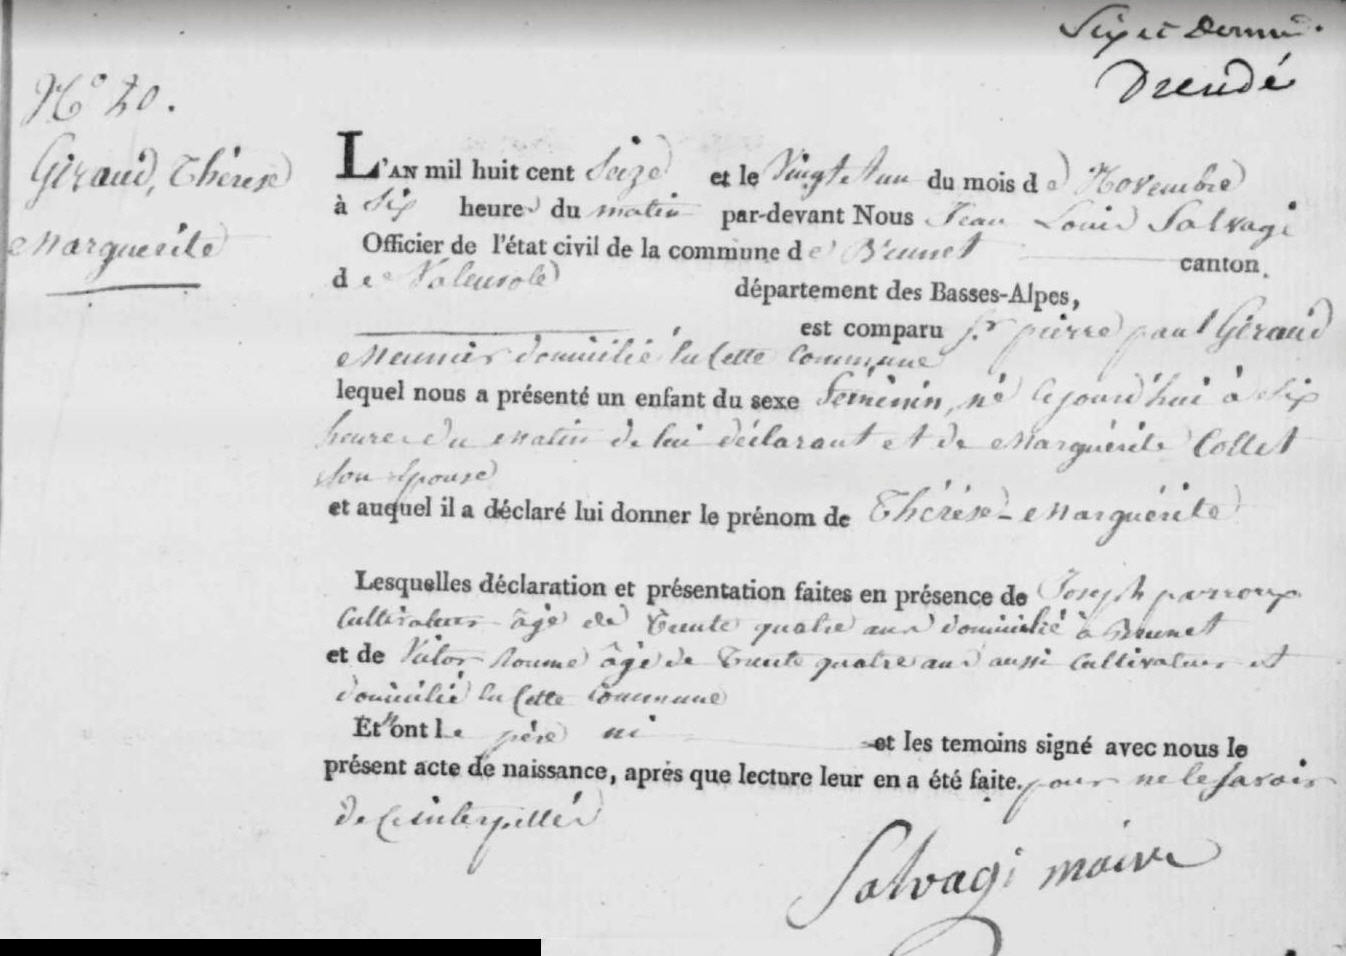 Six et Dernier.
Dreudé
N.° 20.
Giraud, Thérèse
Marguerite
L'AN mil huit cent Seize et le Vingt et un du mois de Novembre
à Six heures du matin par-devant Nous Jean Louis Salvagi
Officier de l'état civil de la commune de Brunet canton
de Valensole département des Basses-Alpes,
est comparu s.r pierre paul Giraud
Meunier domicilié en Cette Commune
lequel nous a présenté un enfant du sexe féminin, né cejourd'hui à Six
heures du matin de lui déclarant et de Marguérite Collet
son épouse
et auquel il a déclaré lui donner le prénom de Thérèse-Marguérite
Lesquelles déclaration et présentation faites en présence de Joseph parroux
Cultivateur âgé de Trente quatre ans domicilié à Brunet
et de Victor Roume âgé de Trente quatre ans aussi Cultivateur et
domicilié en Cette Commune
Et n'ont le père ni et les temoins signé avec nous le
présent acte de naissance, après que lecture leur en a été faite. pour ne le Savoir
de Ce interpellés
Salvagi maire